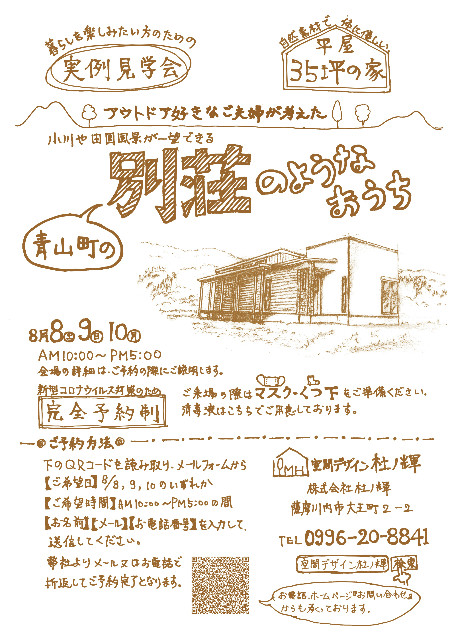 暮らしを楽しみたい方のための
実例見学会
自然素材で、体に優しい
平屋
35坪の家
アウトドア好きなご夫婦が考えた
小川や田園風景が一望できる
別荘のような
おうち
青山町の
8月8(土)9(日)10(月)
AM10:00〜PM5:00
会場の詳細は、ご予約の際にご説明します。
新型コロナウイルス対策のため
完全予約制
ご来場の際はマスク・くつ下をご準備ください。
消毒液はこちらでご用意しております。
ご予約方法
下のQRコードを読み取り、メールフォームから
【ご希望日】8/8,9,10のいずれか
【ご希望時間】AM10:00〜PM5:00の間
【お名前】【メール】【お電話番号】を入力して、
送信してください。
弊社よりメール又はお電話で
折返してご予約完了となります。
MH
空間デザイン杜ノ輝
株式会社杜ノ輝
薩摩川内市大王町2-2
TEL 0996-20-8841
空間デザイン杜ノ輝
検索
お電話、ホームページ『お問い合わせ』
からも承っております。